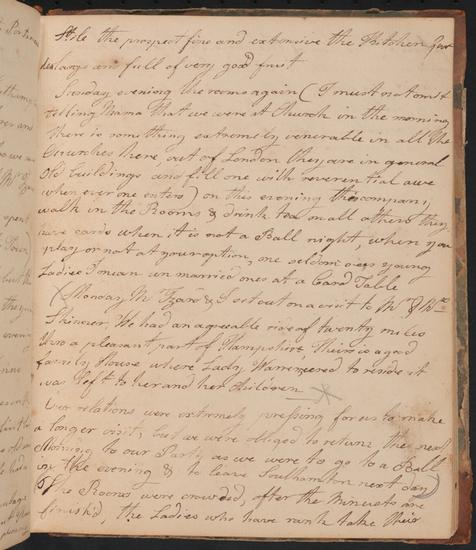 Stile the prospect fine and extensive the Kitchen Gar
den large and full of very good fruit
Sunday evening the rooms again (I must not omit
telling Mama that we were at Church in the morning
there is something extremely venerable in all the
Churches here, out of London they are in general
Old buildings and fill one with reverential awe
when ever one enters) on this evening the company
walk in the Rooms & drink tea on all others they
have cards when it is not a Ball night, when you
play or not at your option, one seldom sees young
Ladies I mean un married ones at a Card Table
Monday Mr Izard & I set out on a visit to Mr & Mrs
Skinner, We had an agreeable ride of twenty miles
thro a pleasant part of Hampshire, Theirs is a good
family House where Lady Warren used to reside it
was left to her and her Children
Our relations were extremely pressing for us to make
a longer visit, but we were obliged to return the next
Morning to our Party as we were to go to a Ball
in the evening & to leave Southamton next day
The Rooms were crowded, after the Minuets are
finish'd, the Ladies who have rank take their